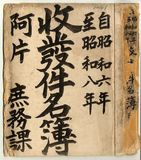 自昭和六年
至昭和八年
收發件名簿
阿片
庶務課